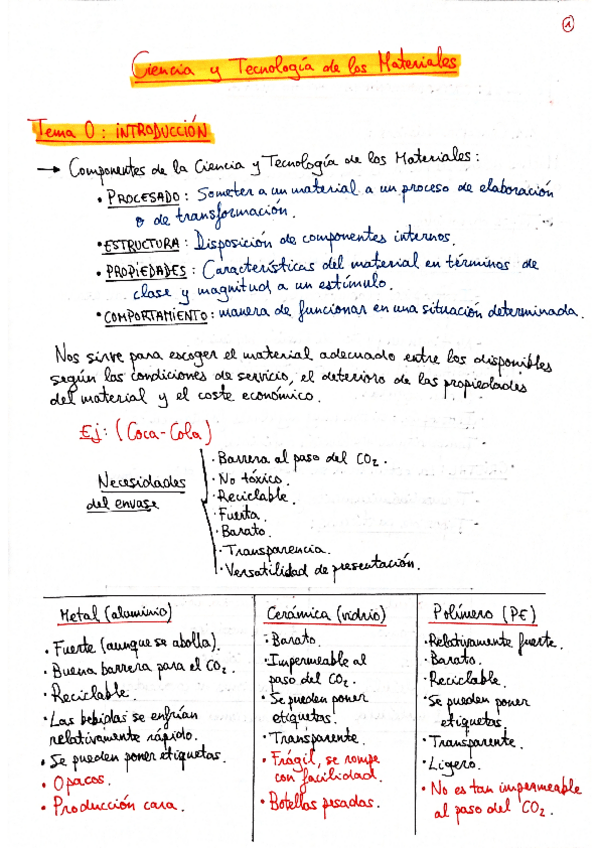 1
Ciencia y Tecnología de los Materiales
Tema 0: INTRODUCCIÓN
→ Componentes de la Ciencia y Tecnología de los Materiales:
• PROCESADO: Someter a un material a un proceso de elaboración
o de transformación.
• ESTRUCTURA: Disposición de componentes internos.
• PROPIEDADES: Características del material en términos de
clase y magnitud a un estímulo.
• COMPORTAMIENTO: manera de funcionar en una situación determinada.
Nos sirve para escoger el material adecuado entre los disponibles
según las condiciones de servicio, el deterioro de las propiedades
del material y el coste económico.
Ej: (Coca-Cola)
Necesidades
del envase
· Barrera al paso del CO₂.
· No tóxico.
· Reciclable.
· Fuerta.
· Barato.
· Transparencia.
· Versatilidad de presentación.
Metal (aluminio)
• Fuerte (aunque se abolla).
• Buena barrera para el CO₂.
• Reciclable.
• Las bebidas se enfrían
relativamente rápido.
• Se pueden poner etiquetas.
• Opacos.
• Producción cara.
Cerámica (vidrio)
• Barato.
• Impermeable al
paso del CO₂.
• Se pueden poner
etiquetas.
• Transparente.
• Frágil, se rompe
con facilidad.
• Botellas pesadas.
Polímero (PE)
• Relativamente fuerte.
• Barato.
• Reciclable.
• Se pueden poner
etiquetas.
• Transparente.
• Ligero.
• No es tan impermeable
al paso del CO₂.